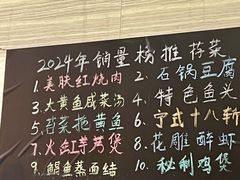 2024年销量榜推荐菜
1.美肤红烧肉
2.石锅豆腐
3.大黄鱼咸菜汤
4.特色鱼头
5.苔菜拖黄鱼
6.宁式十八斩
7.火红芋艿煲
8.花雕醉虾
9.鲳鱼蒸面结
10.秘制鸡煲